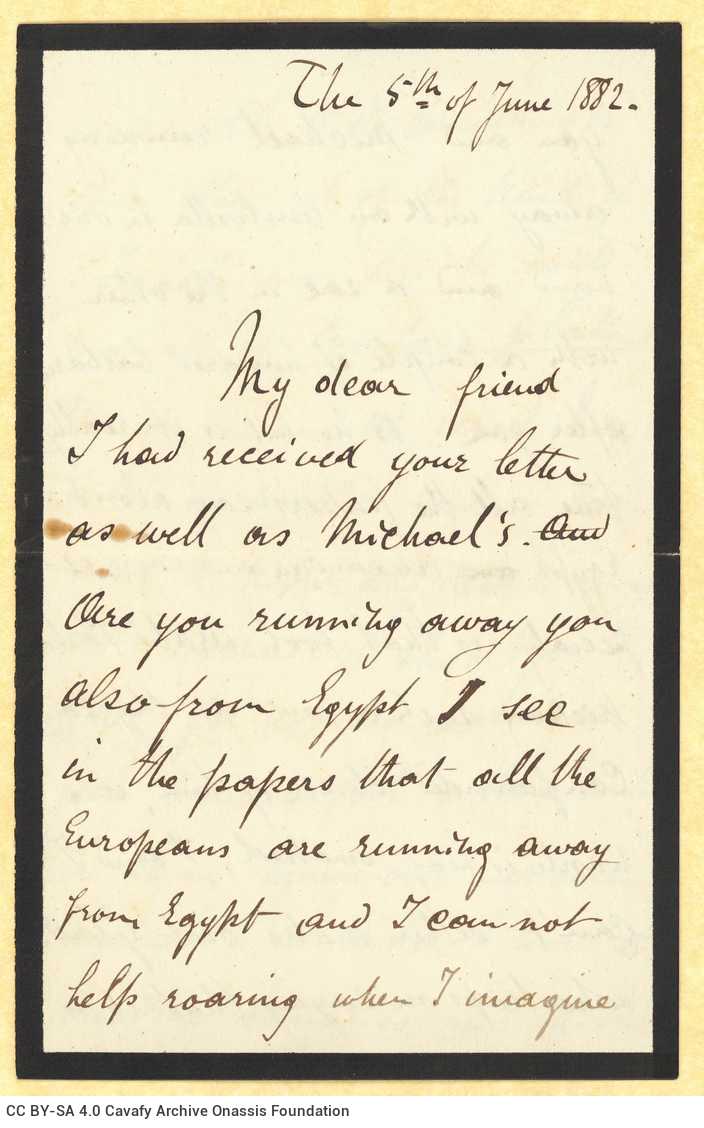 The 5th of June 1882.
My dear friend
I had received your letter
as well as Michael's. and
Are you running away you
also from Egypt I see
in the papers that all the
Europeans are running away
from Egypt and I can not
help roaring when I imagine
CC BY-SA 4.0 Cavafy Archive Onassis Foundation